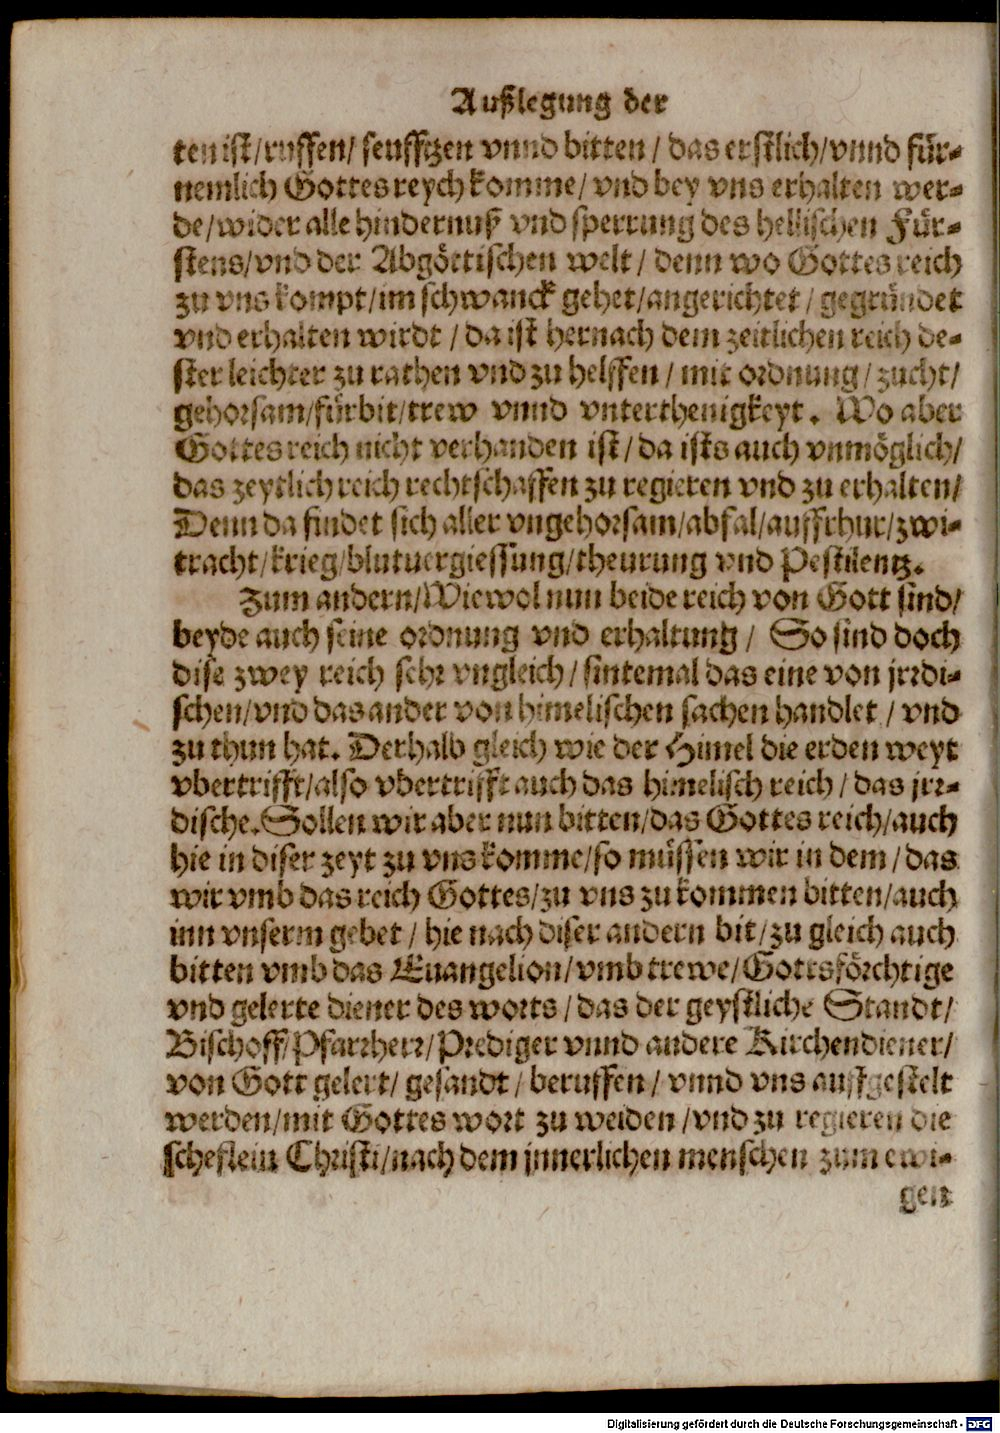 Außlegung der
ten ist/ruffen/ seufftzen vnnd bitten / das erstlich/vnnd für-
nemlich Gottes reych komme/ vnd bey vns erhalten wer-
de/wider alle hindernuß vnd sperrung des hellischen Für-
stens/vnd der Abgöttischen welt / denn wo Gottes reich
zu vns kompt/im schwanck gehet/angerichtet / gegründet
vnd erhalten wirdt / da ist hernach dem zeitlichen reich de-
ster leichter zu rathen vnd zu helffen / mit ordnung / zucht/
gehorsam/fürbit/trew vnnd vnterthenigkeyt. Wo aber
Gottes reich nicht verhanden ist / da ists auch vnmöglich/
das zeytlich reich rechtschaffen zu regieren vnd zu erhalten/
Denn da findet sich aller vngehorsam/abfal/auffrhur/zwi-
tracht/krieg/blutuergiessung/theurung vnd Pestilentz.
Zum andern/Wiewol nun beide reich von Gott sind/
beyde auch seine ordnung vnd erhaltung / So sind doch
dise zwey reich sehr vngleich / sintemal das eine von jrrdi-
schen/vnd das ander von himelischen sachen handlet / vnd
zu thun hat. Derhalb gleich wie der Himel die erden weyt
vbertrifft/also vbertrifft auch das himelisch reich / das jrr-
dische. Sollen wir aber nun bitten/das Gottes reich/auch
hie in diser zeyt zu vns komme/so müssen wir in dem / das
wir vmb das reich Gottes/zu vns zu kommen bitten/auch
inn vnserm gebet / hie nach diser andern bit/zu gleich auch
bitten vmb das Euangelion/vmb trewe/Gottsförchtige
vnd gelerte diener des worts / das der geystliche Standt/
Bischoff/Pfarrherr/Prediger vnnd andere Kirchendiener/
von Gott gelert/ gesandt / beruffen / vnnd vns auffgestelt
werden/mit Gottes wort zu weiden /vnd zu regieren die
scheflein Christi/nach dem jnnerlichen menschen zum ewi-
gen
Digitalisierung gefördert durch die Deutsche Forschungsgemeinschaft - DFG